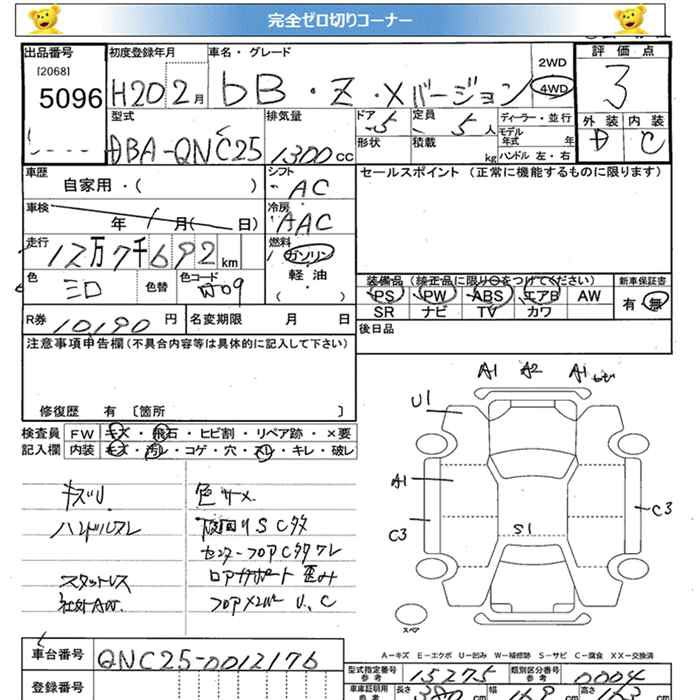 完全ゼロ切りコーナー
出品番号 初度登録年月 車名・グレード 評価点
[2068]
5096 H20 2月 bB・Z・Xバージョン 2WD 4WD 3
型式 排気量 ドア 定員 ディーラー・並行 外装 内装
DBA-QNC25 1300cc 5 5人 モデル年式 年 D C
形状 積載 kg ハンドル 左・右
車歴 シフト セールスポイント(正常に機能するものに限ります)
自家用・( ) AC
車検 冷房
年 月( 日) AAC
走行 燃料
12万7千692km ガソリン
色 色替 色コード 軽・油
シロ W09 ( )
装備品(純正品に限り○をつけてください) 新車保証書
PS PW ABS エアB AW 有・無
SR ナビ TV カワ
R券 10190円 名変期限 月 日 後日品
注意事項申告欄(不具合内容等は具体的に記入して下さい)
修復歴 有〔箇所 〕
検査員 FW キズ・飛石・ヒビ割・リペア跡・×要
記入欄 内装 キズ・汚レ・コゲ・穴・スレ・キレ・破レ
A1 A2 A1
U1
A1
C3
S1
C3
スペア
キズU
ハンドルスレ
スタットレス
社外AW.
色サメ
下回りSC多
センターフロアC多クレ
ロアサポート歪み
フロアメンバーU、C
A−キズ E−エクボ U−凹み W−補修跡 S−サビ C−腐食 XX−交換済
車台番号 QNC25-0012176 型式指定番号 参考 15275 類別区分番号 参考 0004
登録番号 車庫証明用 参考 長さ 380cm 幅 169 高さ 163